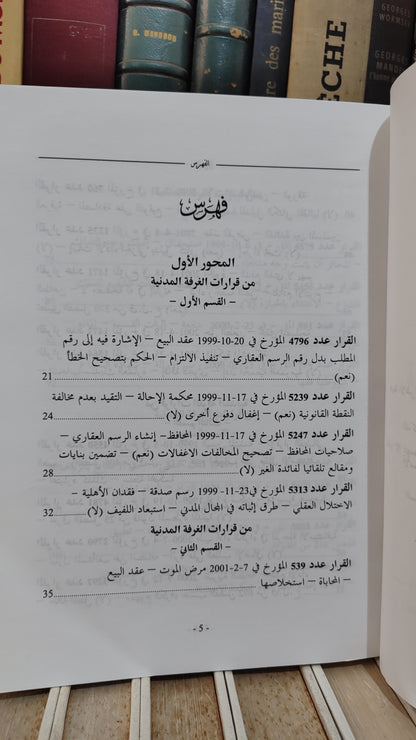 G. MANDOUD
re des mari
ÈCHE
GEORGES
WORMSER
GEORGES
MANDE
l'homme
الفهرس
فهرس
المحور الأول
من قرارات الغرفة المدنية
– القسم الأول –
القرار عدد 4796 المؤرخ في 20-10-1999 عقد البيع – الإشارة فيه إلى رقم
المطلب بدل رقم الرسم العقاري – تنفيذ الالتزام – الحكم بتصحيح الخطأ
(نعم)......21
القرار عدد 5239 المؤرخ في 17-11-1999 محكمة الإحالة – التقيد بعدم مخالفة
النقطة القانونية (نعم) – إغفال دفوع أخرى (لا)......24
القرار عدد 5247 المؤرخ في 17-11-1999 المحافظ– إنشاء الرسم العقاري –
صلاحيات المحافظ – تصحيح المخالفات الاغفالات (نعم) – تضمين بنايات
ومقالع تلقائيا لفائدة الغير (لا)......28
القرار عدد 5313 المؤرخ في23-11- 1999 رسم صدقة – فقدان الأهلية –
الاختلال العقلي – طرق إثباته في المجال المدني – استبعاد اللفيف (لا)......32
من قرارات الغرفة المدنية
– القسم الثاني –
القرار عدد 539 المؤرخ في 7-2-2001 مرض الموت – عقد البيع
– المحاباة – استخلاصها......35
- 5 -